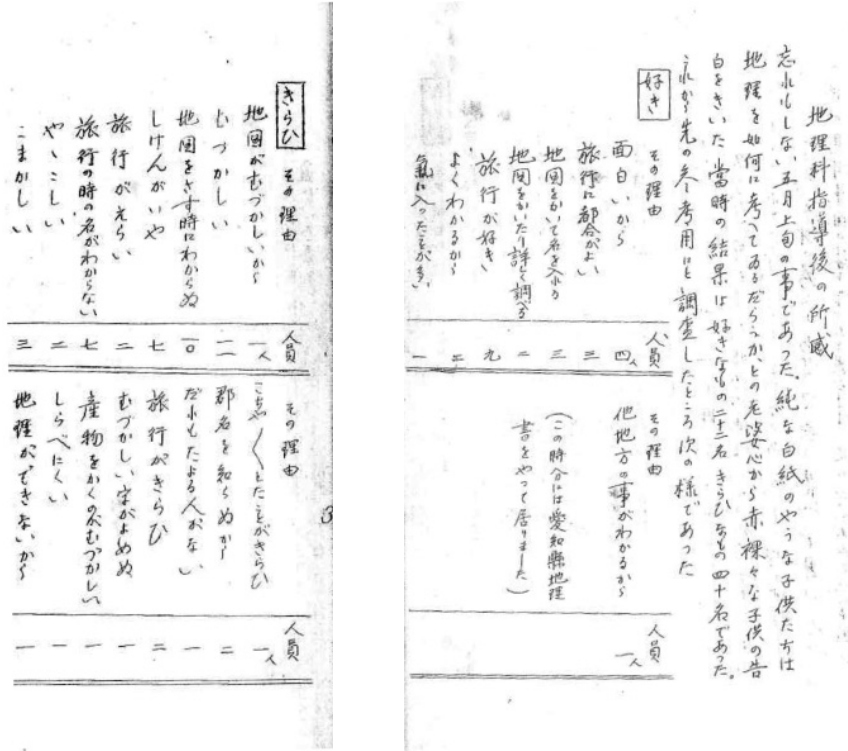 地理科指導後の所感
忘れもしない五月上旬の事であった。純な白紙のやうな子供たちは
地理を如何に考へてゐるだらうか、との老婆心から赤裸々な子供の告
白をきいた當時の結果は好きなもの二十二名きらひなもの四十名であった。
これから先の参考用にと調査したところ次の様であった
好き
その理由
人員
面白いから
四人
旅行に都合がよい
三
地図をかいて名を入れる
三
地図をかいたり詳しく調べる
二
旅行が好き
九
よくわかるから
二
氣に入ったことが多い
一
その理由
人員
他地方の事がわかるから
一人
(この時分には愛知縣地理
書をやって居りました)
きらひ
その理由
人員
地図がむづかしいから
一人
むづかしい
一一
地図をさす時にわからぬ
一〇
しけんがいや
七
旅行がえらい
二
旅行の時の名がわからない
七
やゝこしい
二
こまかしい
三
その理由
人員
こちゃ〱としたことがきらひ
一人
郡名を知らぬから
二
だれもたよる人がない
一
旅行がきらひ
二
むづかしい字がよめぬ
一
産物をかくのがむづかしい
一
しらべにくい
一
地理ができないから
一
3